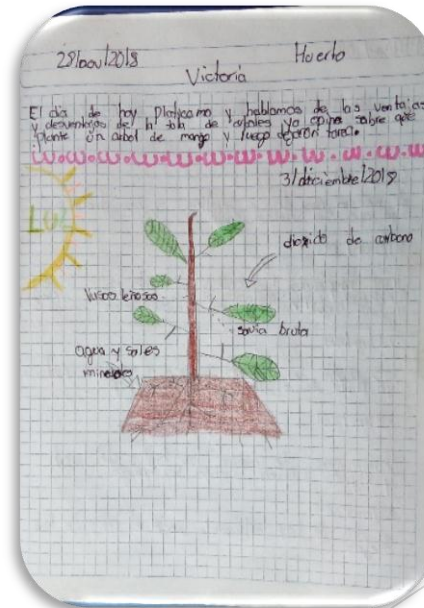 28/nov/2018 Huerto
Victoria
El día de hoy platicamo y hablamos de las ventajas
y desventajas de la tala de arboles yo opine sobre que
plante un arbol de mango y luego dejaron tarea.
3/diciembre/2018
LUZ
dioxido de carbono
Vasos leñosos
savia bruta
agua y sales
minerales